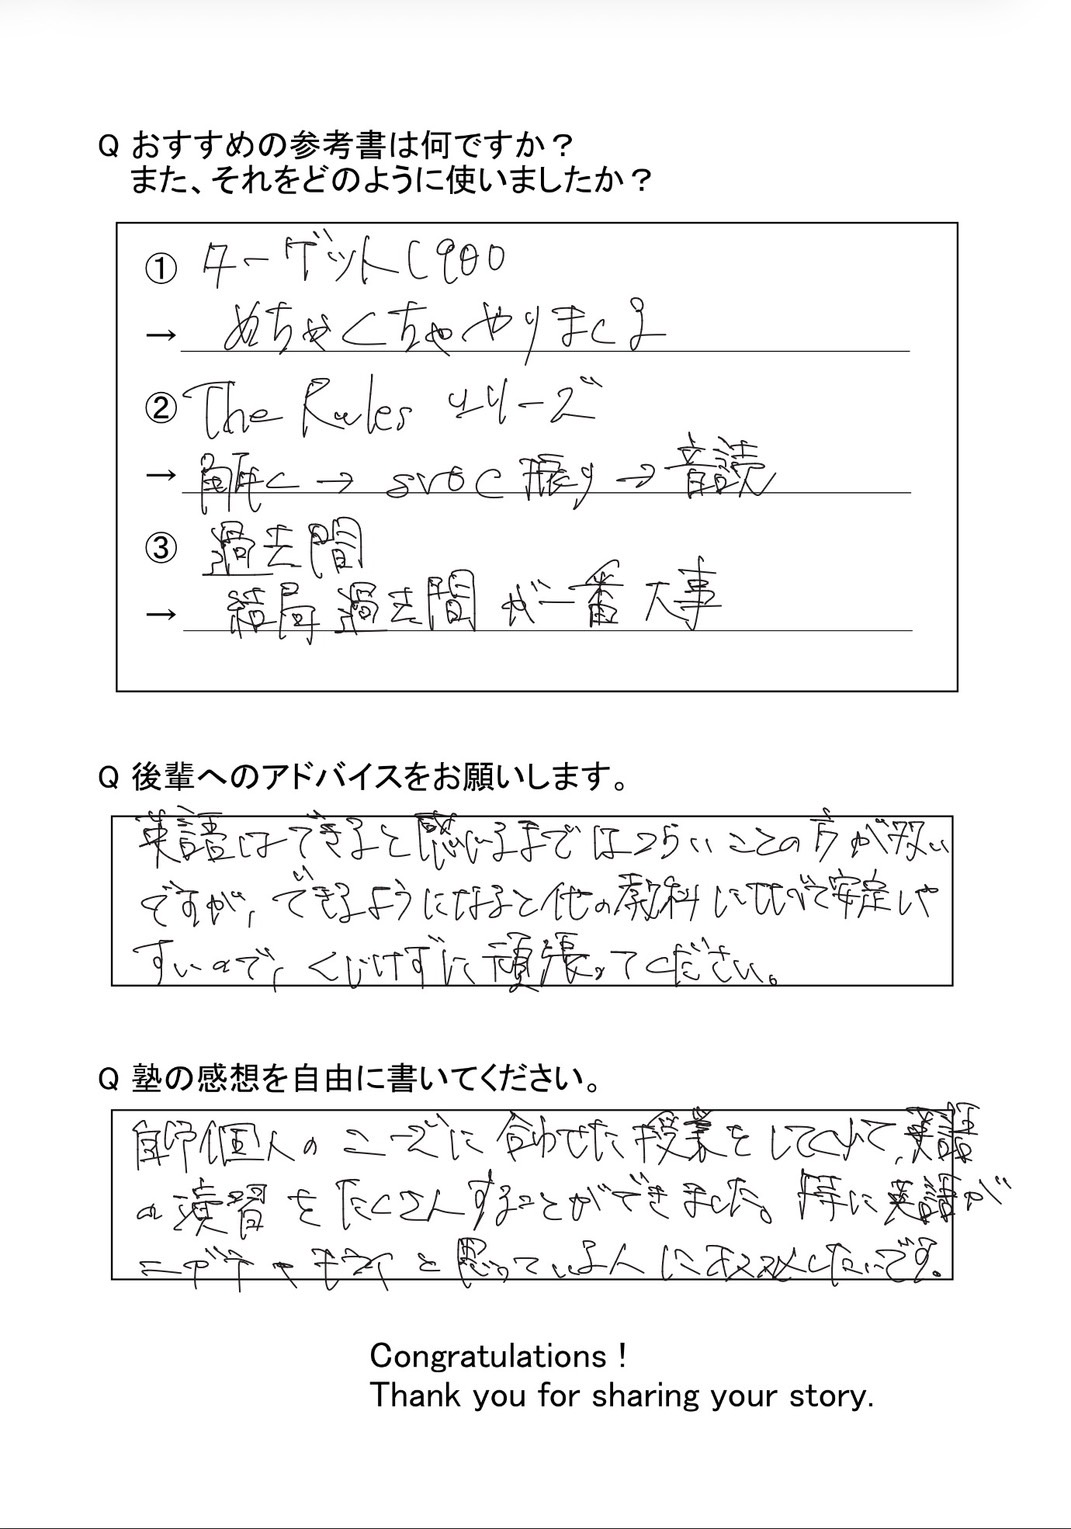 Q おすすめの参考書は何ですか？
また、それをどのように使いましたか？
① ターゲット1900
→ めちゃくちゃやりましょ
② The Rules シリーズ
→ 解く → SVOC振り → 音読
③ 過去問
→ 結局過去問が一番大事
Q 後輩へのアドバイスをお願いします。
英語はできると感じるまではつらいことの方が多い
ですが、できるようになると他の教科に比べて安定しや
すいので、くじけずに頑張ってください。
Q 塾の感想を自由に書いてください。
自分個人のニーズに合わせた授業をしてくれて、英語
の演習をたくさんすることができました。特に英語が
ニガテと思っている人にオススメしたいです。
Congratulations！
Thank you for sharing your story.